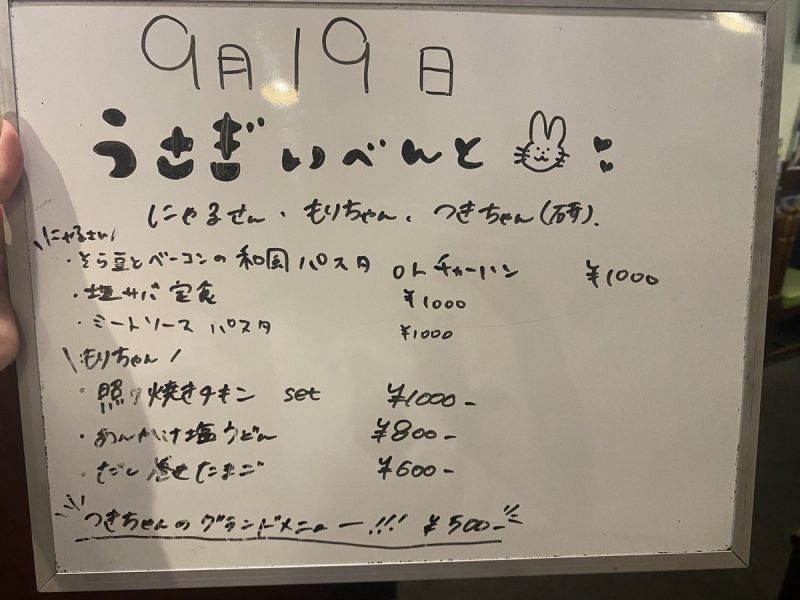 9月19日
うさぎいべんと
にゃるさん・もりちゃん、つきちゃん(研).
\\にゃるさん/
・そら豆とベーコンの和風パスタ or チャーハン ¥1000
・塩サバ定食 ¥1000
・ミートソースパスタ ¥1000
\もりちゃん/
・照り焼きチキン set ¥1000-
・あんかけ塩うどん ¥800-
・だし巻きたまご ¥600-
つきちゃんのグランドメニュー!!! ¥500-